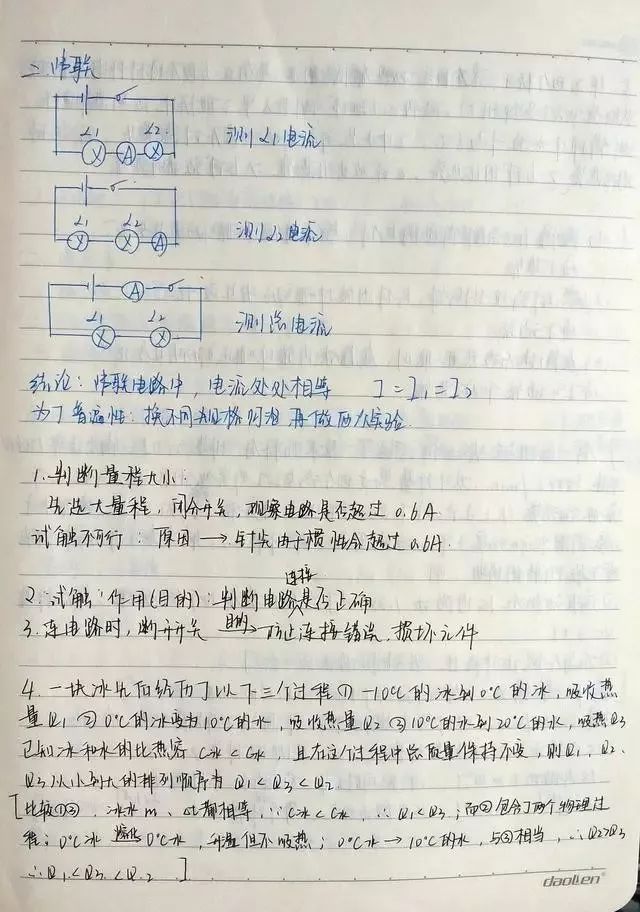 二、串联
L1 A L2 测L1电流
L1 L2 A 测L2电流
A
L1 L2 测总电流
结论：串联电路中，电流处处相等 I=I1=I2
为了普遍性：换不同规格灯泡 再做两次实验
1.判断量程大小.
先选大量程，闭合开关，观察电路是否超过0.6A.
试触不可行：原因→针头由于惯性会超过0.6A.
2."试触"作用(目的)：判断电路连接是否正确
3.连电路时，断开开关 目的→防止连接错误，损坏元件
4.一块冰先后经历了以下三个过程①-10℃的冰到0℃的冰，吸收热
量Q1 ②0℃的冰变为10℃的水，吸收热量Q2 ③10℃的水到20℃的水，吸热Q3
已知冰和水的比热容C冰<C水，且在这个过程中总质量保持不变，则Q1、Q2、
Q3从小到大的排列顺序为Q1<Q3<Q2
[比较①③，冰水m、Δt都相等，∵C冰<C水，∴Q1<Q3；而②包含了两个物理过
程：0℃冰 熔化→ 0℃水，吸热；0℃水→10℃的水，与③相当，∴Q2>Q3
∴Q1<Q3<Q2]
daolien